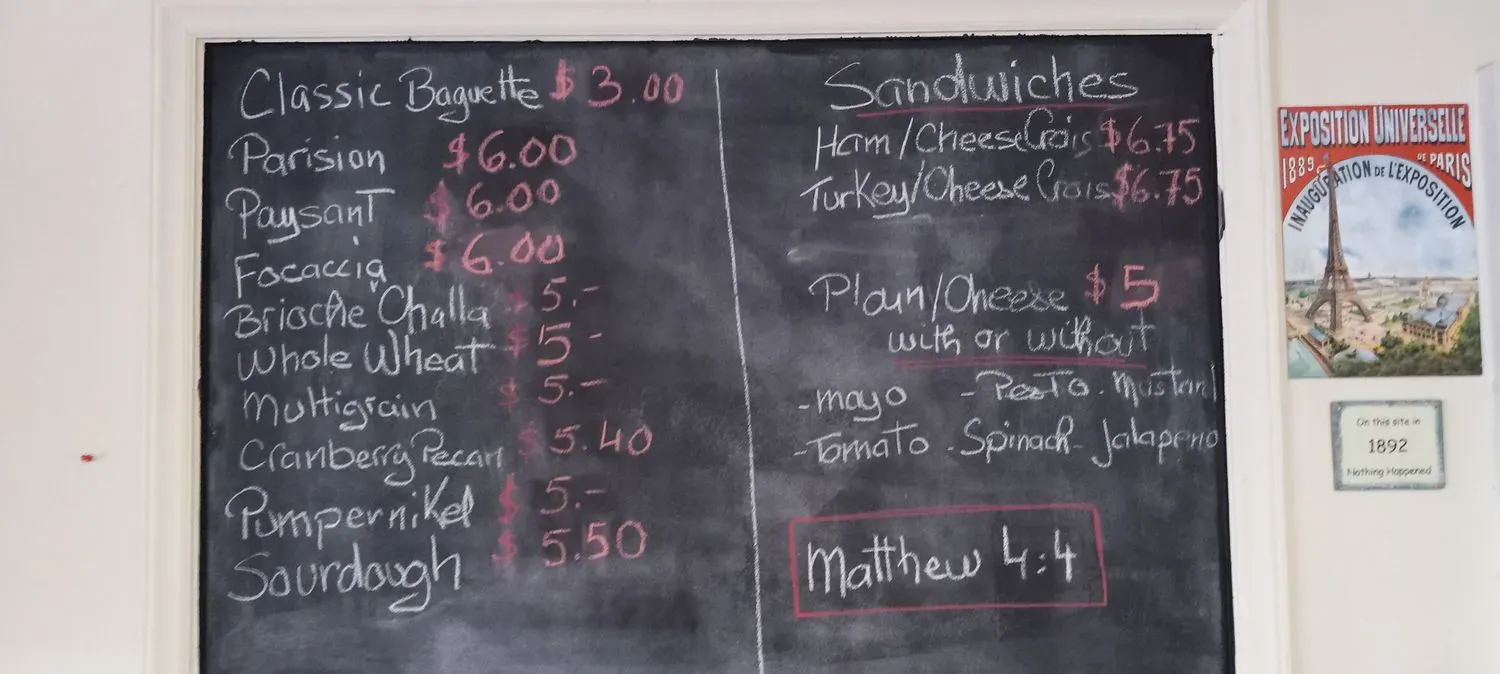 Classic Baguette $3.00
Parision $6.00
Paysant $6.00
Focaccia $6.00
Brioche Challa $5.-
Whole Wheat $5-
Multigrain $5.-
Cranberry Pecan $5.40
Pumpernikel $5.-
Sourdough $5.50
Sandwiches
Ham/Cheese Crois $6.75
Turkey/Cheese Crois $6.75
Plain/Cheese $5
with or without
-mayo -Pesto - Mustard
-Tomato - Spinach - Jalapeno
Matthew 4:4
EXPOSITION UNIVERSELLE
1889 DE PARIS
INAUGURATION DE L'EXPOSITION
On this site in
1892
Nothing Happened